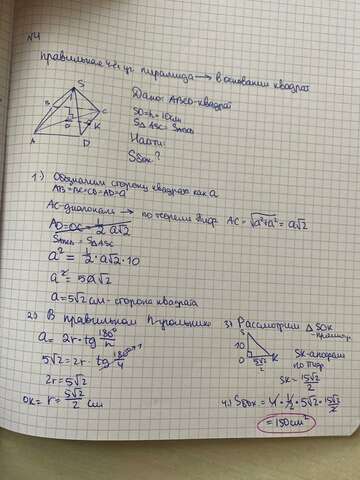 N4
Правильная 4х уг. пирамида → в основании квадрат
S
B
C
O
K
A
D
Дано: ABCD-квадрат
SO=h=10см
S△ASC = Sоснов
Найти:
Sбок - ?
1.) Обозначим сторону квадрата как a
AB=BC=CD=AD=a
AC-диагональ → по теореме Пиф. AC = √a²+a² = a√2
AO=OC= 1/2 a√2
Sоснов = S△ASC
a² = 1/2 · a√2 · 10
a² = 5a√2
a = 5√2 см - сторона квадрата
2.) В правильном n-угольнике
a = 2r · tg 180°/n
5√2 = 2r · tg 180°/4
2r = 5√2
OK = r = 5√2/2 см
3) Рассмотрим △SOK
прямоуг.
S
10
O
5√2/2
K
SK-апофема
по Пиф
SK = 15√2/2
4.) Sбок = 4 · 1/2 · 5√2 · 15√2/2
= 150 см²